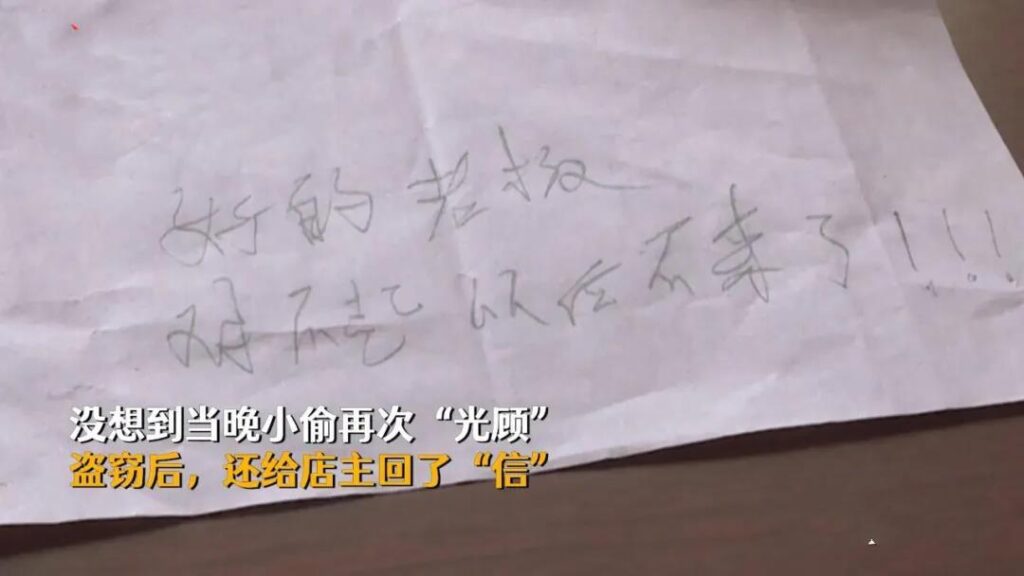 好的老板
对不起 以后不来了!!!
没想到当晚小偷再次“光顾”
盗窃后，还给店主回了“信”